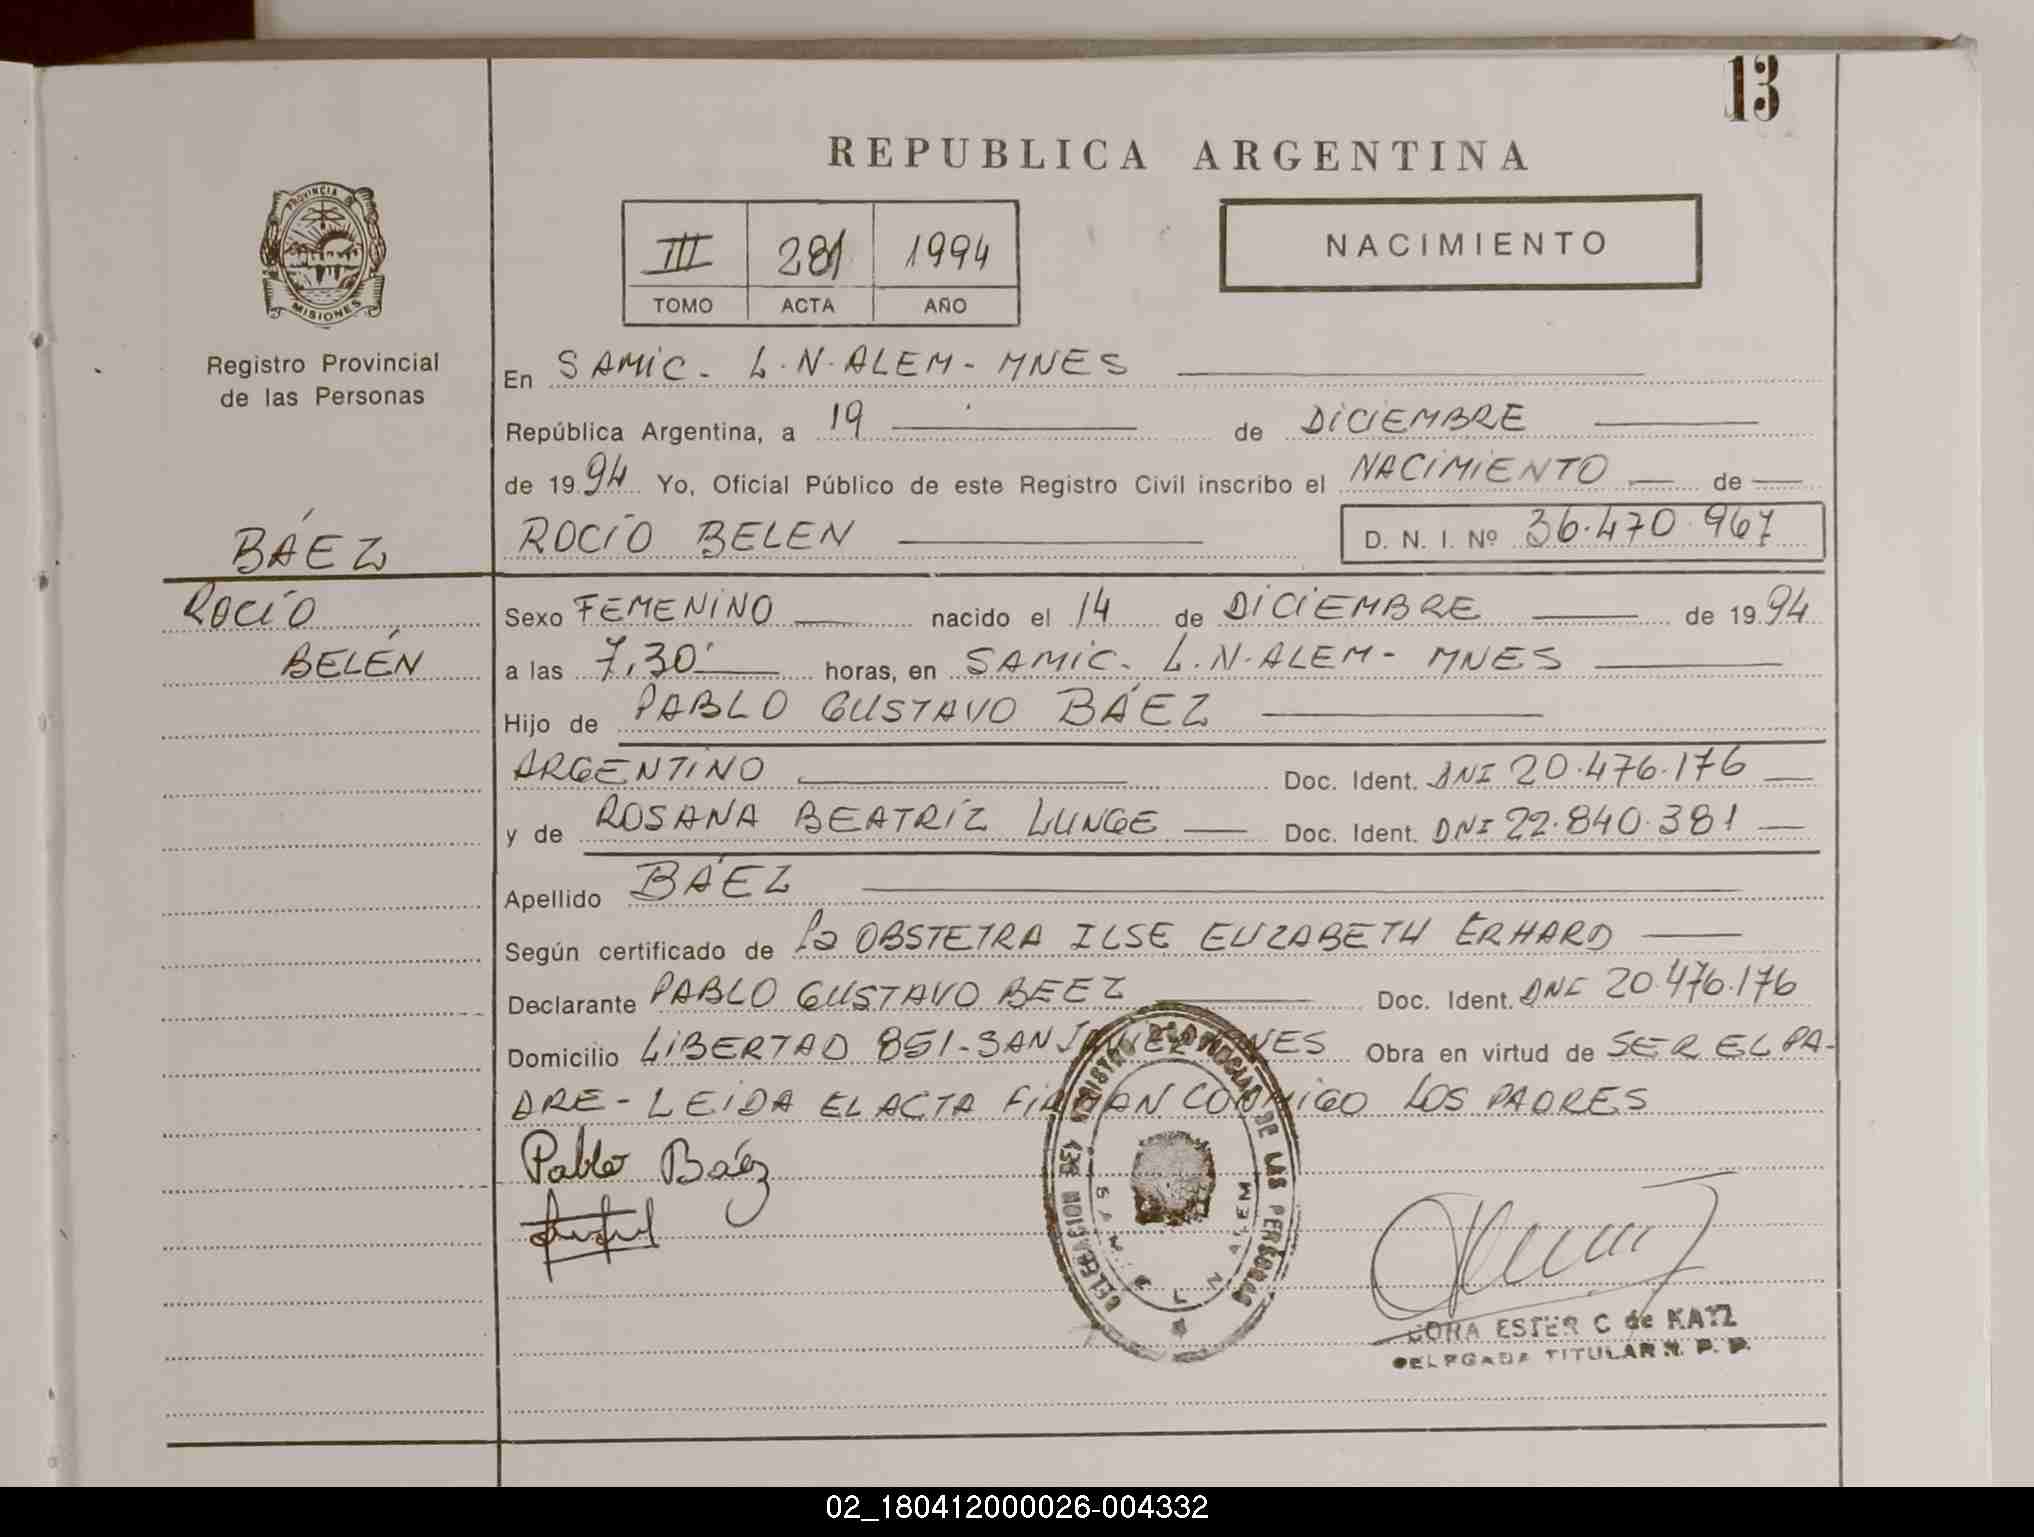 13
REPUBLICA ARGENTINA
PROVINCIA
MISIONES
Registro Provincial
de las Personas
III 281 1994
TOMO ACTA AÑO
NACIMIENTO
En SAMIC. L.N.ALEM - MNES
República Argentina, a 19 de DICIEMBRE
de 1994 Yo, Oficial Público de este Registro Civil inscribo el NACIMIENTO de
ROCÍO BELEN D. N. I. Nº 36.470.967
BÁEZ
ROCÍO
BELÉN
Sexo FEMENINO nacido el 14 de DICIEMBRE de 1994
a las 7,30' horas, en SAMIC. L.N.ALEM - MNES
Hijo de PABLO GUSTAVO BÁEZ
ARGENTINO Doc. Ident. DNI 20.476.176
y de ROSANA BEATRÍZ LUNGE Doc. Ident. DNI 22.840.381
Apellido BÁEZ
Según certificado de la OBSTETRA ILSE ELIZABETH ERHARD
Declarante PABLO GUSTAVO BEEZ Doc. Ident. DNI 20.476.176
Domicilio LIBERTAD 851-SAN JAVIER MNES Obra en virtud de SER EL PA-
DRE - LEIDA EL ACTA FIRMAN CONMIGO LOS PADRES
Pablo Báez
DELEGACION DEL REGISTRO PROVINCIAL DE LAS PERSONAS
L N ALEM
ESTER C de KATZ
DELEGADA TITULAR R. P. P.
02_180412000026-004332